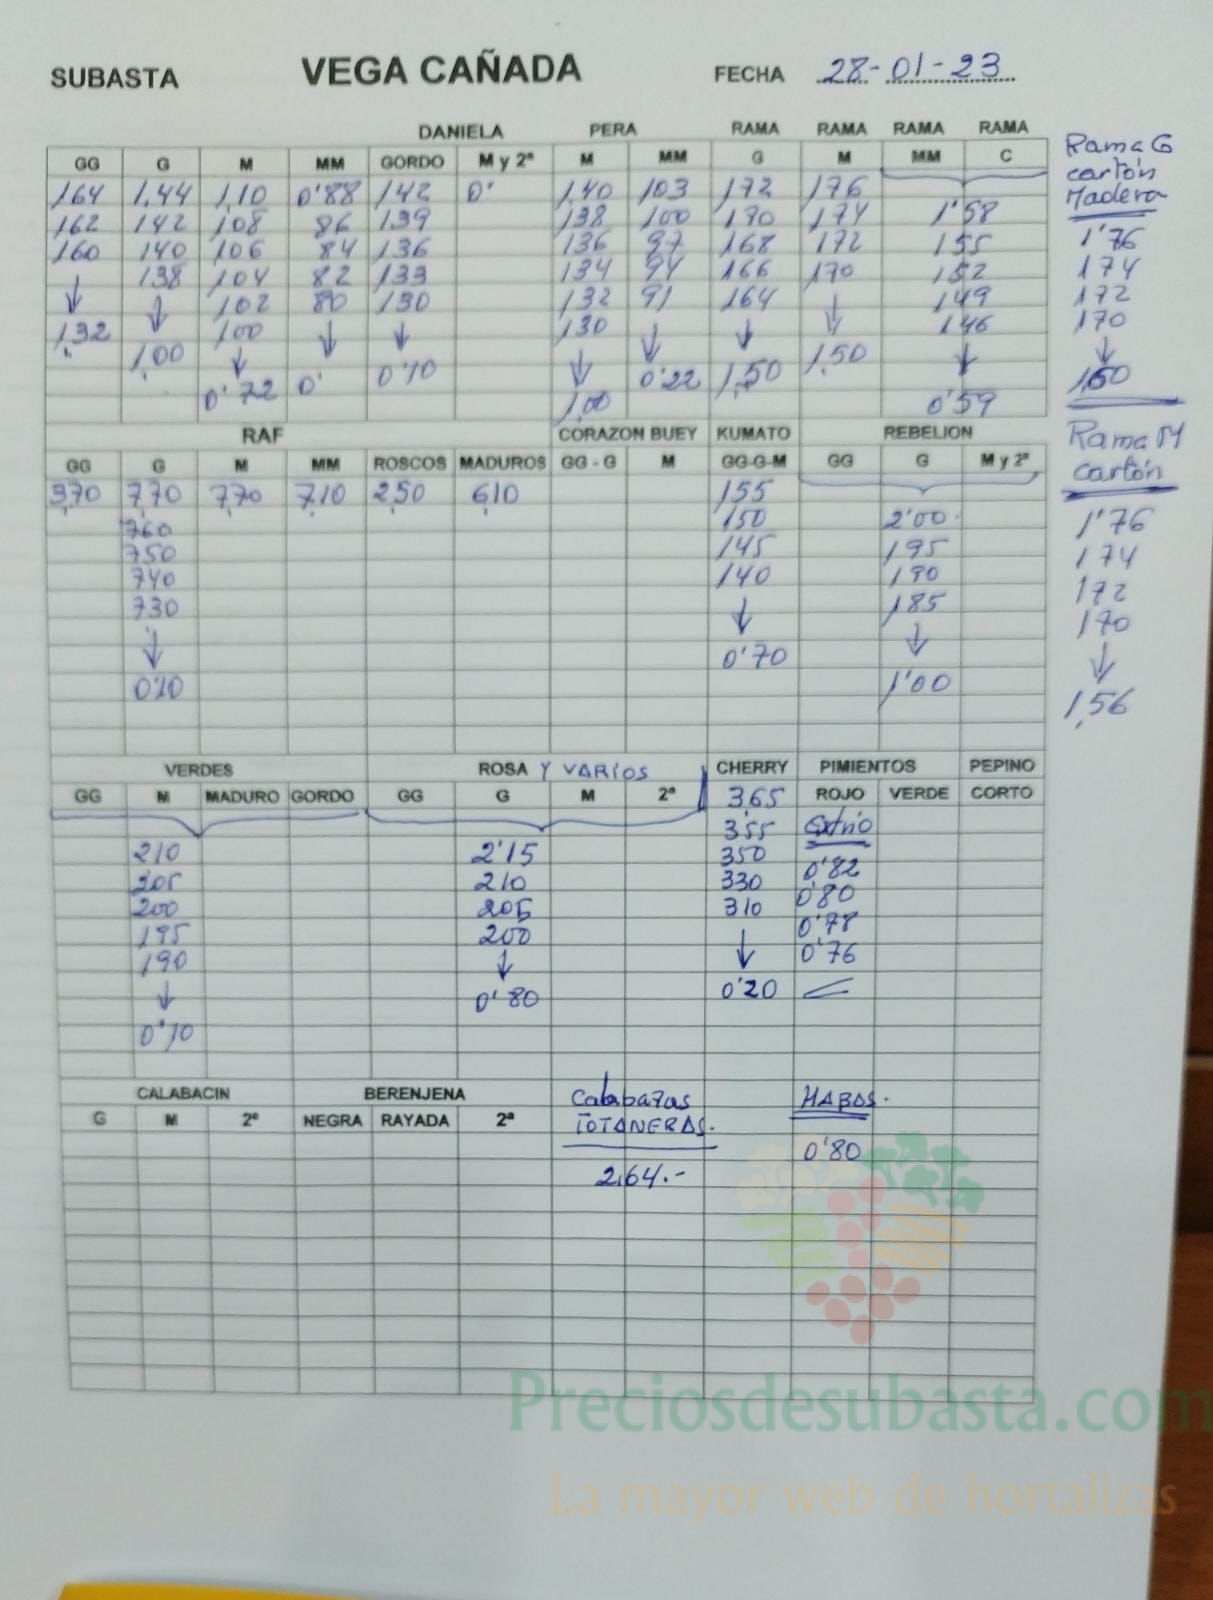 SUBASTA VEGA CAÑADA FECHA 28-01-23
DANIELA PERA RAMA RAMA RAMA RAMA
GG G M MM GORDO M y 2ª M MM G M MM C
164 1,44 1,10 0'88 142 0' 1,40 103 172 176
162 142 108 86 139 138 100 170 174 1'58
160 140 106 84 136 136 97 168 172 155
138 104 82 133 134 94 166 170 152
↓ ↓ 102 80 130 132 91 164 ↓ 149
1,32 100 ↓ ↓ 130 ↓ ↓ 146
1,00 ↓ 0'10 ↓ 0'22 1,50 1,50 ↓
0'72 0' 1,00 0'59
Rama G
cartón
Madera
1'76
174
172
170
↓
RAF CORAZON BUEY KUMATO REBELION
GG G M MM ROSCOS MADUROS GG - G M GG-G-M GG G M y 2ª
3,70 7,70 7,70 7,10 2,50 6,10 155
760 150 2'00
750 145 195
740 140 190
730 ↓ 185
↓ 0'70 ↓
1'00
Rama M
cartón
1'76
174
172
170
↓
1,56
VERDES ROSA Y VARIOS CHERRY PIMIENTOS PEPINO
GG M MADURO GORDO GG G M 2ª 3,65 ROJO VERDE CORTO
3'55
210 2'15 350 0'82
205 210 330 0'80
200 205 310 0'78
195 200 ↓ 0'76
190 ↓ 0'20
↓ 0'80
0'10
CALABACIN BERENJENA Calabazas HABAS.
G M 2ª NEGRA RAYADA 2ª TOTANERAS.
0'80
2,64.-
Preciosdesubasta.com
La mayor web de hortalizas